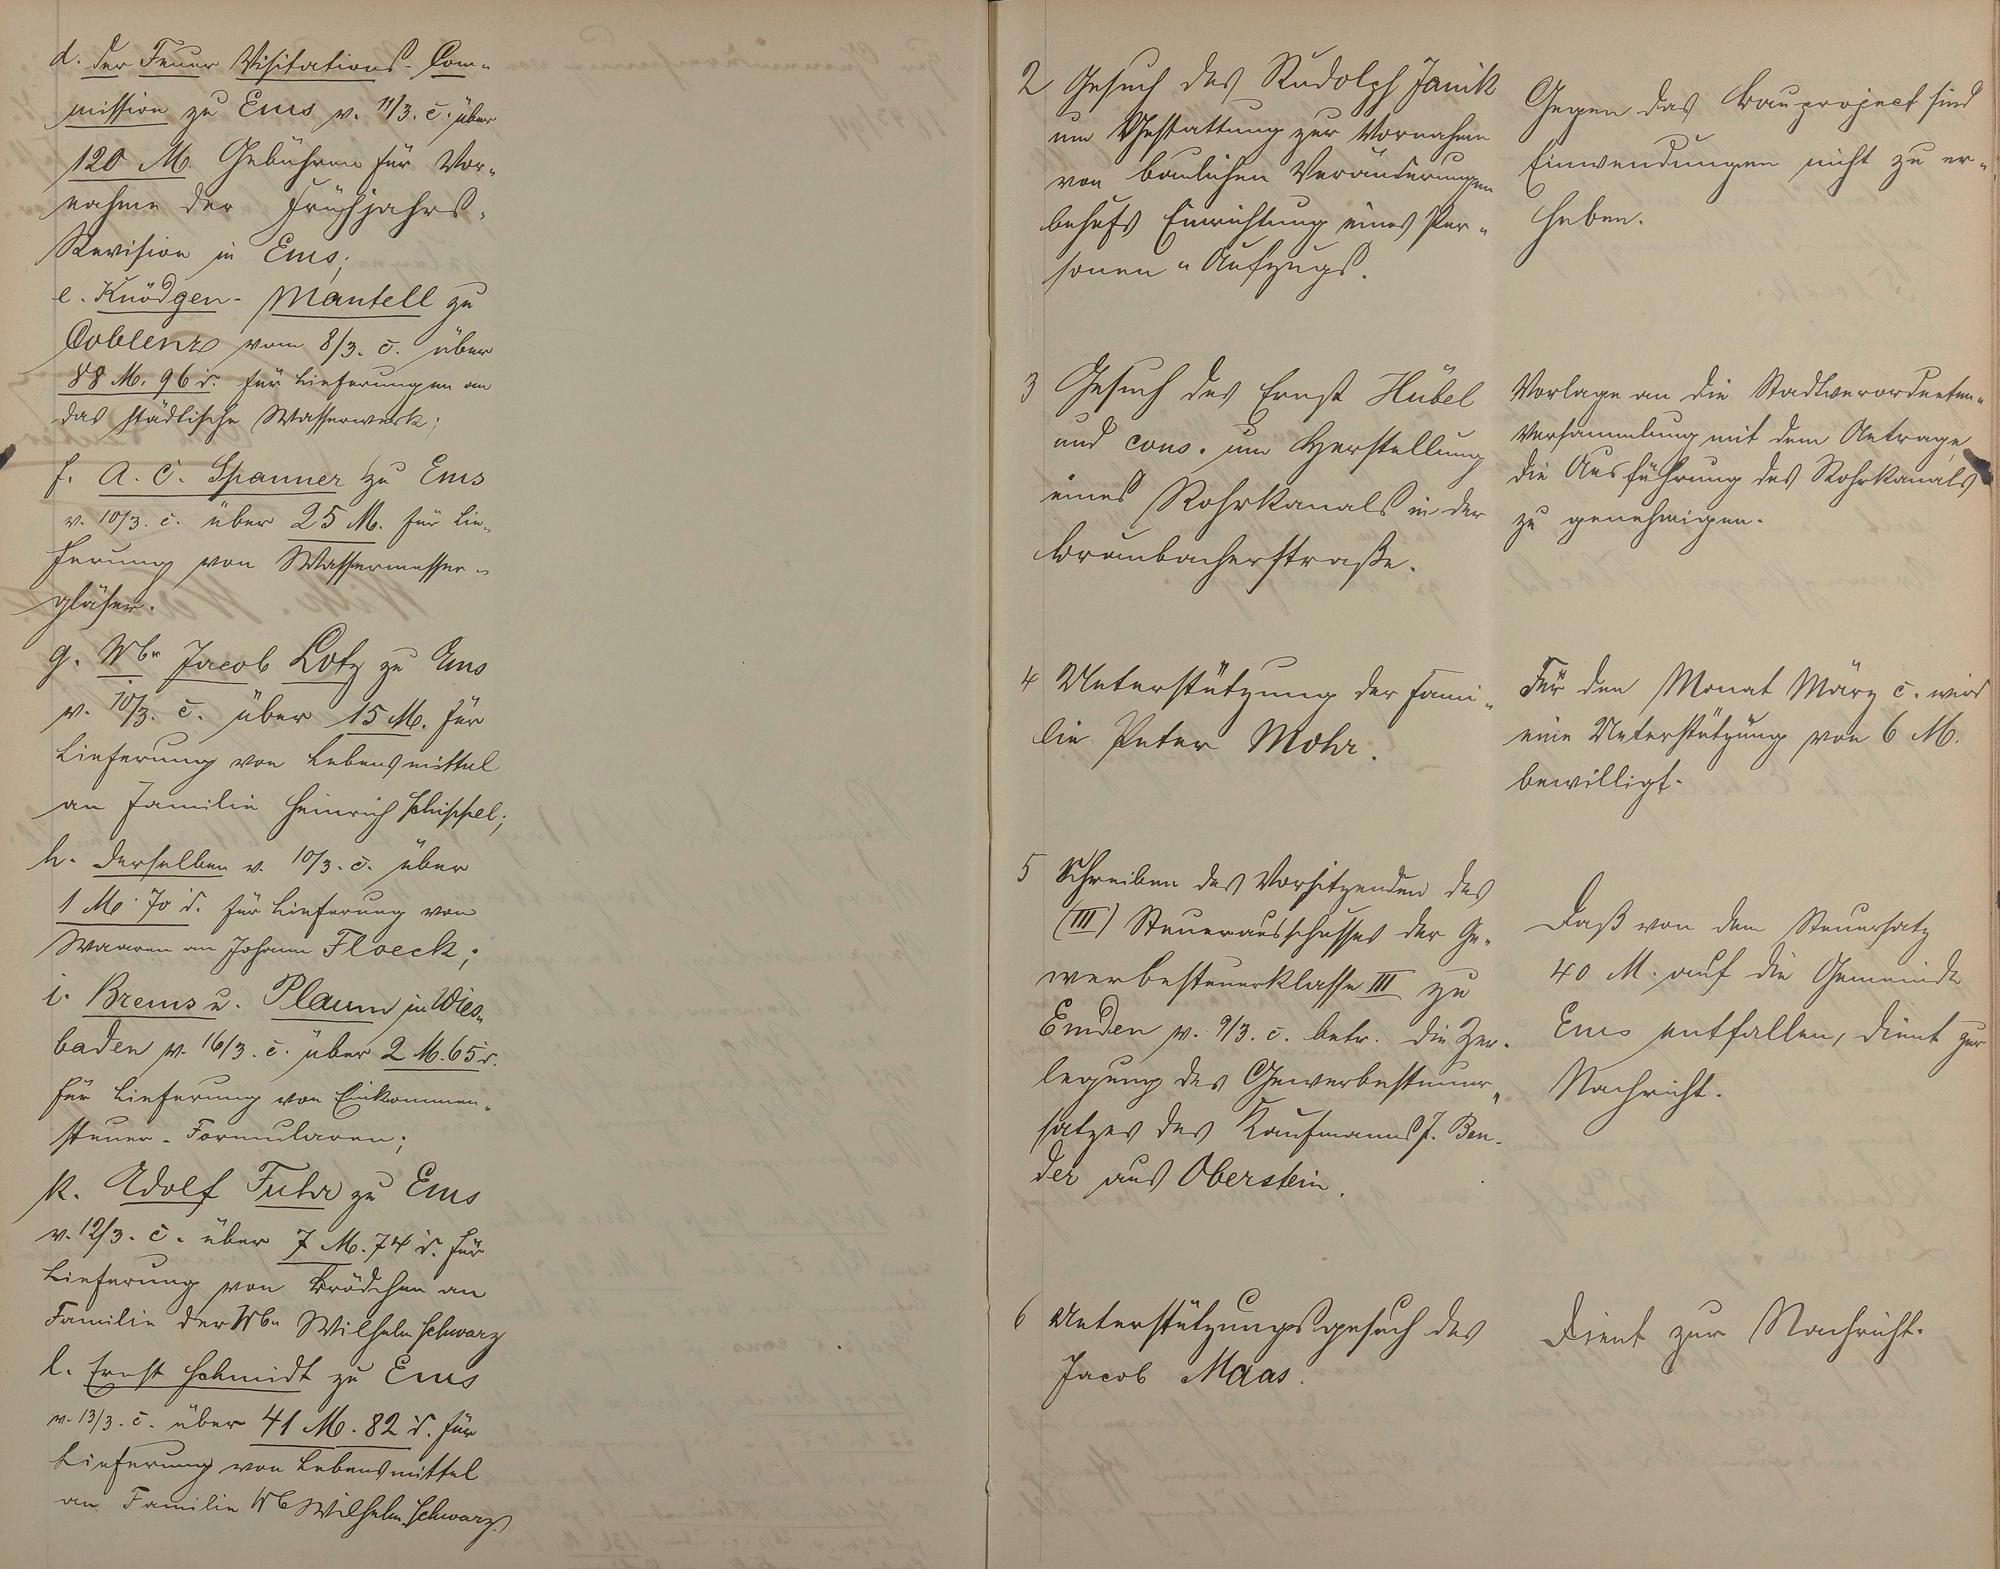 d. der Feuer Visitations-Com-
mission zu Ems v. 11/3. c. über
120 M. Gebühren für Vor-
nahme der Frühjahrs-
Revision in Ems;
e. Knödgen-Mantell zu
Coblenz vom 8/3. c. über
88 M. 96 d. für Lieferungen an
das städtische Wasserwerk;
f. A. C. Spanner zu Ems
v. 10/3. c. über 25 M. für Lie-
ferung von Wassermesser-
gläser.
g. Wbr Jacob Lotz zu Ems
v. 10/3. c. über 15 M. für
Lieferung von Lebensmittel
an Familie Heinrich Schippel;
h. derselben v. 10/3. c. über
1 M. 70 d. für Lieferung von
Waaren an Johann Floeck;
i. Brems u. Plaum in Wies-
baden v. 16/3. c. über 2 M. 65 d.
für Lieferung von Einkommen-
steuer-Formularen;
k. Adolf Fuhr zu Ems
v. 12/3. c. über 7 M. 74 d. für
Lieferung von Brödchen an
Familie der Wbe Wilhelm Schwarz
l. Ernst Schmidt zu Ems
v. 13/3. c. über 41 M. 82 d. für
Lieferung von Lebensmittel
an Familie Wb Wilhelm Schwarz.
2 Gesuch des Rudolph Janik
um Gestattung zur Vornahme
von baulichen Veränderungen
behufs Einrichtung eines Per-
sonen-Aufzugs.
Gegen das Bauproject sind
Einwendungen nicht zu er-
heben.
3 Gesuch des Ernst Hübel
und cons. um Herstellung
eines Rohrkanals in der
Braubacherstraße.
Vorlage an die Stadtverordneten-
Versammlung mit dem Antrage,
die Ausführung des Rohrkanals
zu genehmigen.
4 Unterstützung der Fami-
lie Peter Mohr.
Für den Monat März c. wird
eine Unterstützung von 6 M.
bewilligt.
5 Schreiben des Vorsitzenden des
(III) Steuerausschusses der Ge-
werbesteuerklasse III zu
Emden v. 9/3. c. betr. die Zer-
legung des Gewerbesteuer-
satzes des Kaufmanns J. Ben-
der aus Oberstein.
Daß von dem Steuersatz
40 M. auf die Gemeinde
Ems entfallen, dient zur
Nachricht.
6 Unterstützungsgesuch des
Jacob Maas.
Dient zur Nachricht.